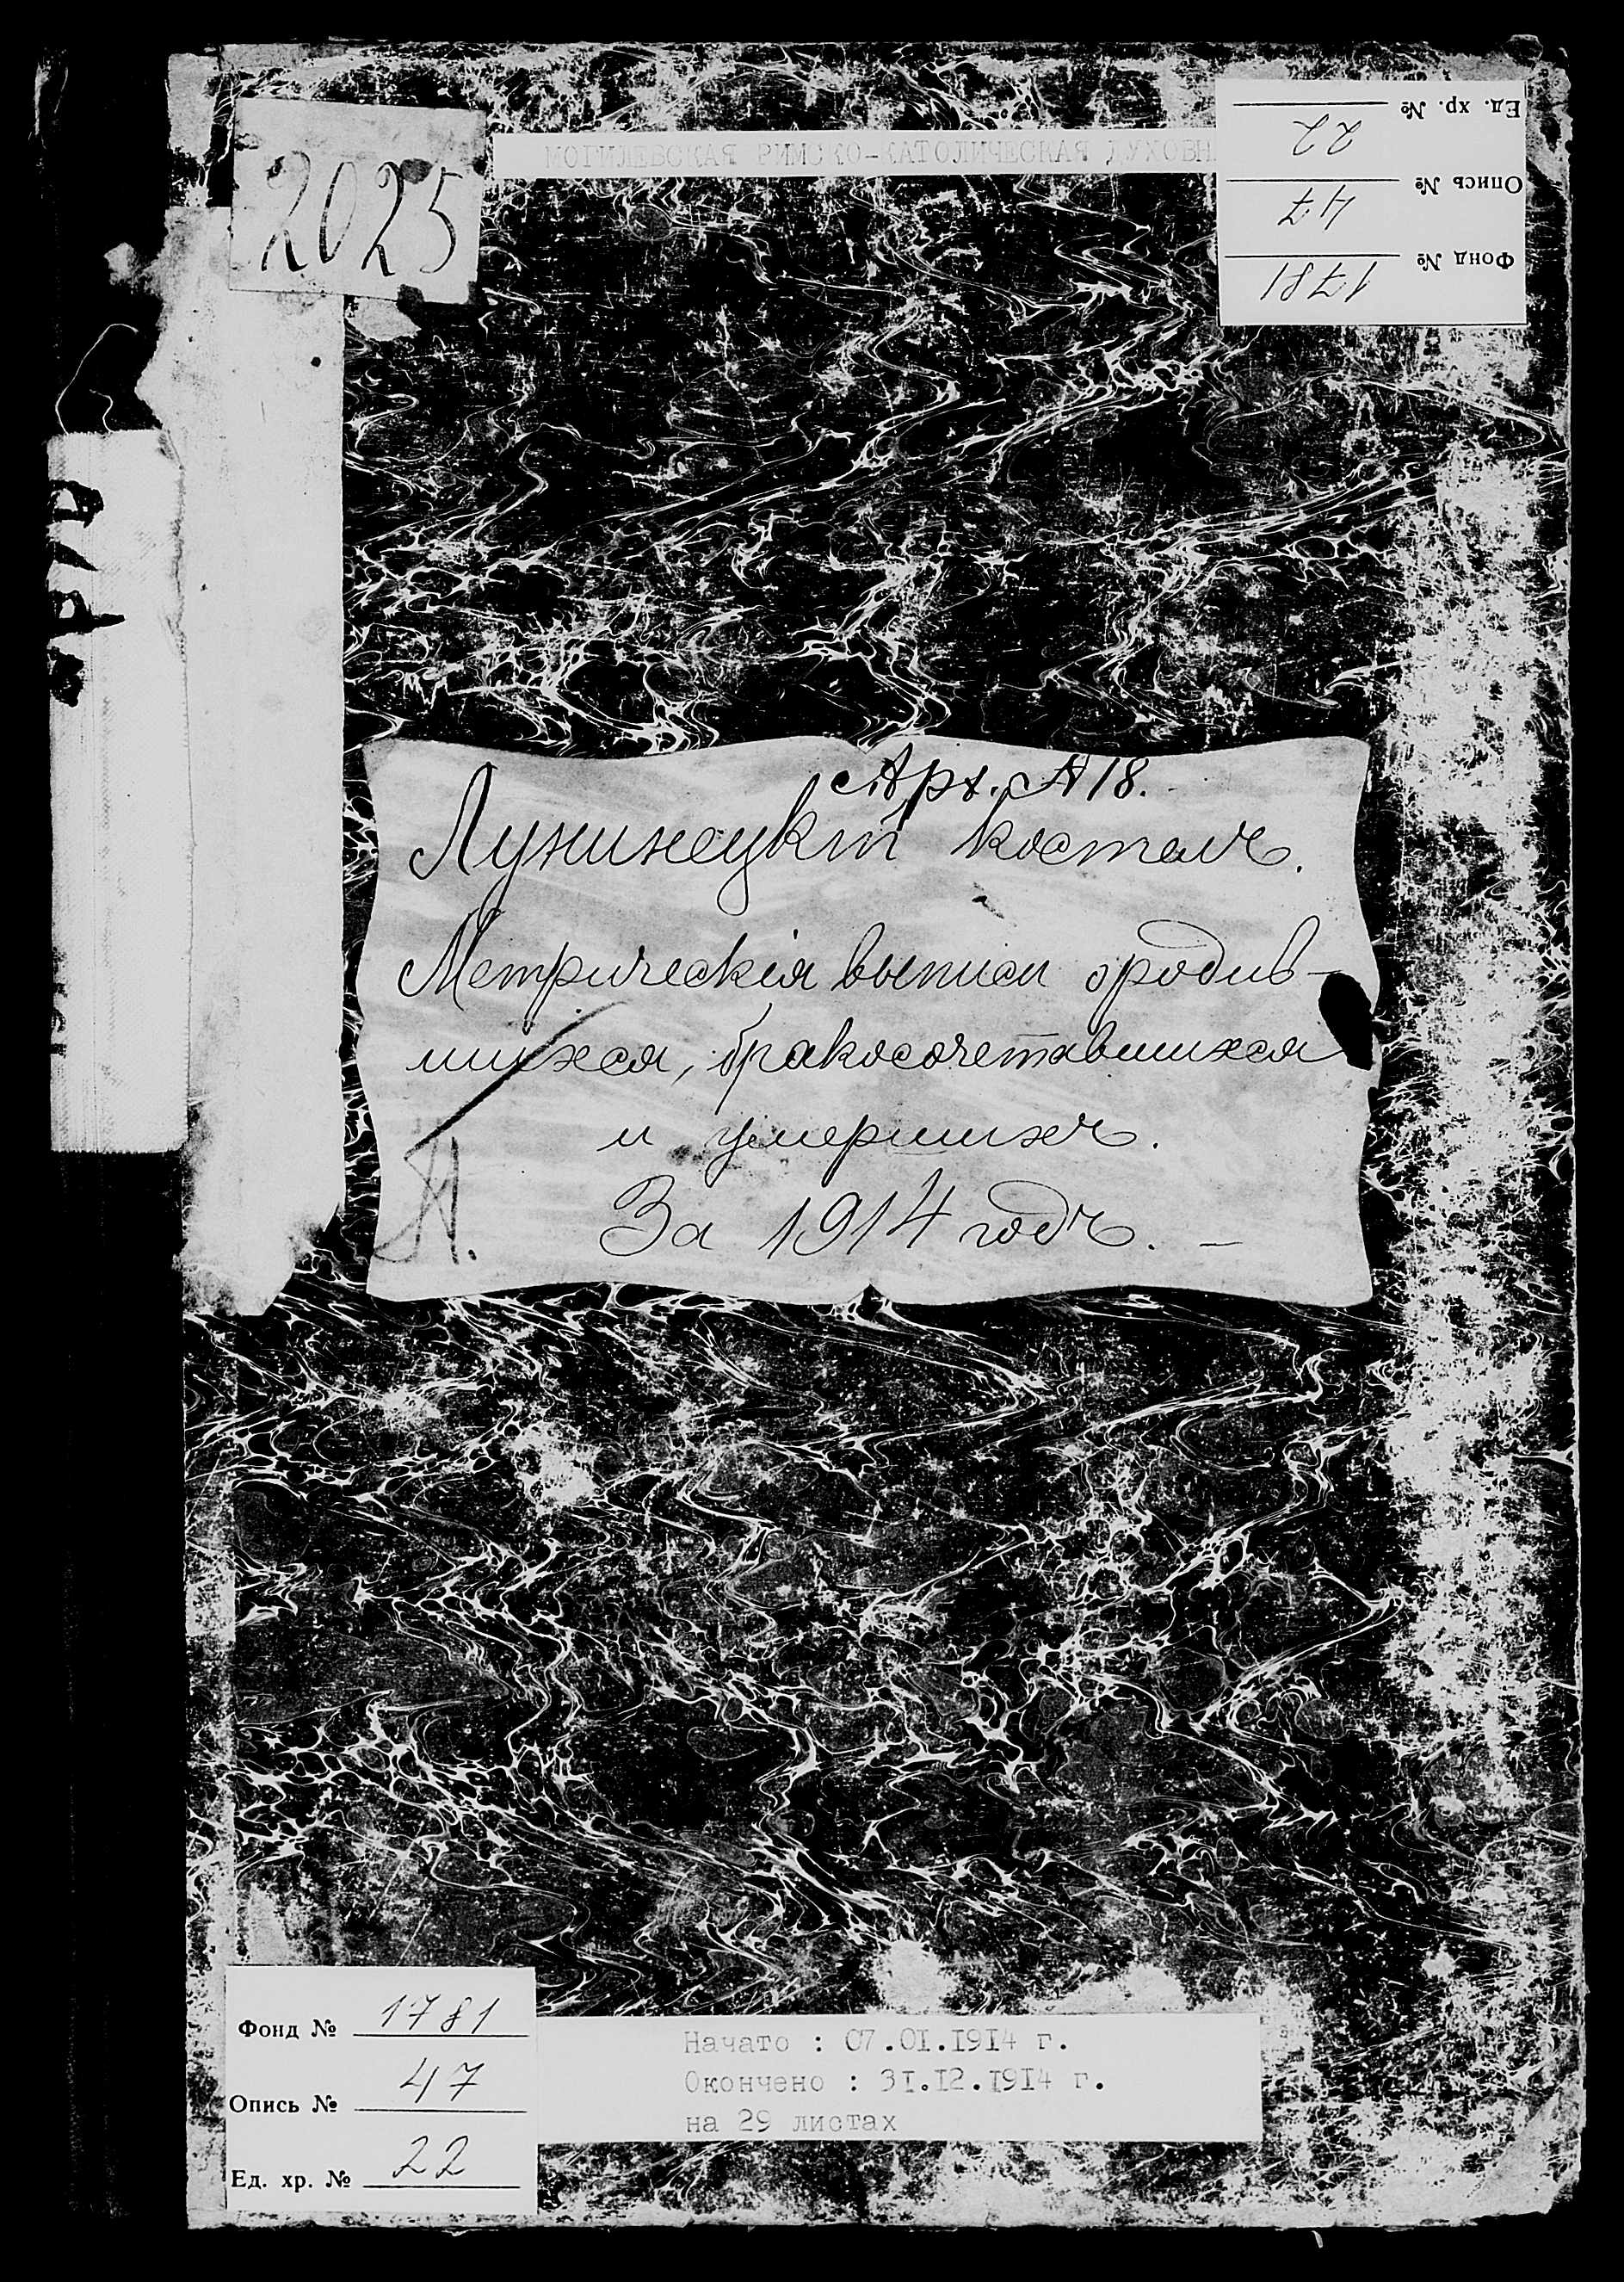 2025
МОГИЛЕВСКАЯ РИМСКО-КАТОЛИЧЕСКАЯ ДУХОВН
Фонд № 1781
Опись № 47
Ед. хр. № 22
Арх. А 18.
Лунинецкій костелъ.
Метрическія выписи о родив-
шихся, бракосочетавшихся
и умершихъ.
За 1914 годъ. –
Фонд № 1781
Опись № 47
Ед. хр. № 22
Начато : 07.01.1914 г.
Окончено : 31.12.1914 г.
на 29 листах